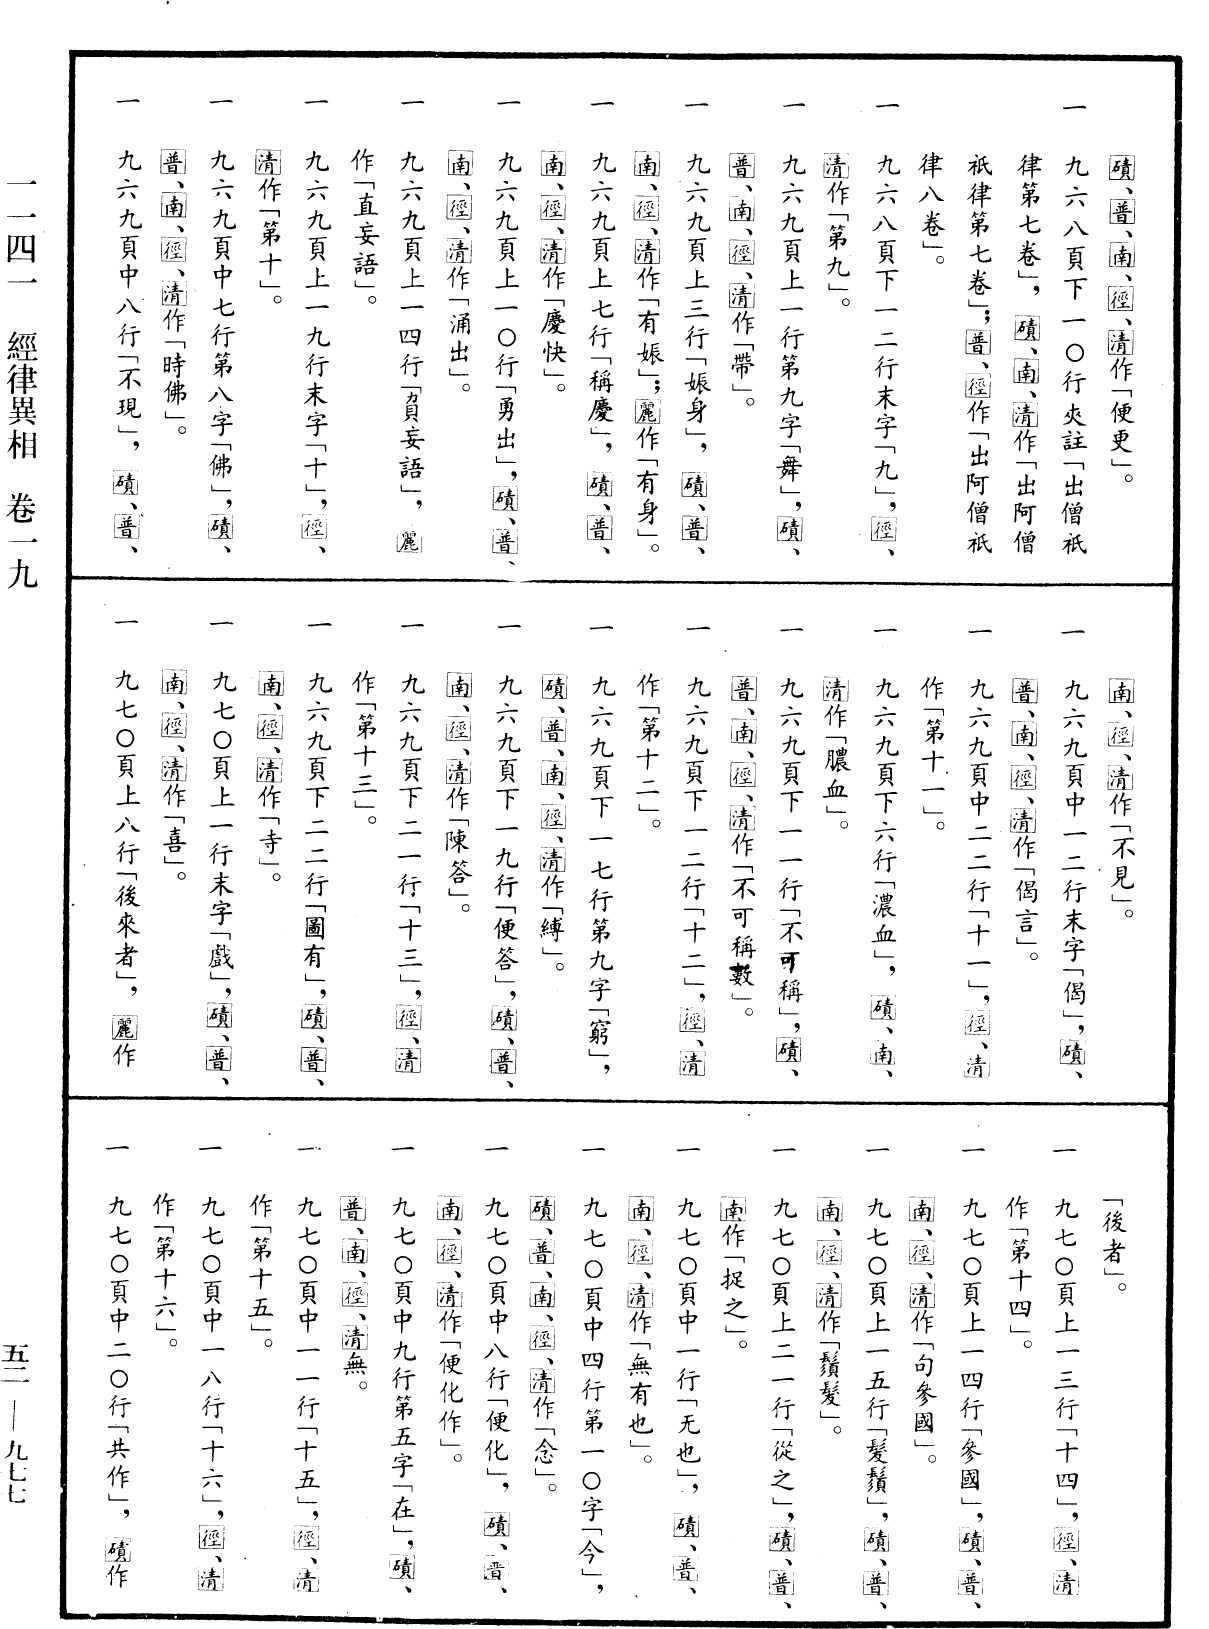 磧、普、南、徑、清作「便更」。
一　九六八頁下一〇行夾註「出僧祇
律第七卷」，磧、南、清作「出阿僧
祇律第七卷」；普、徑作「出阿僧祇
律八卷」。
一　九六八頁下一二行末字「九」，徑、
清作「第九」。
一　九六九頁上一行第九字「舞」，磧、
普、南、徑、清作「帶」。
一　九六九頁上三行「娠身」，磧、普、
南、徑、清作「有娠」；麗作「有身」。
一　九六九頁上七行「稱慶」，磧、普、
南、徑、清作「慶快」。
一　九六九頁上一〇行「勇出」，磧、普、
南、徑、清作「涌出」。
一　九六九頁上一四行「負妄語」，麗
作「直妄語」。
一　九六九頁上一九行末字「十」，徑、
清作「第十」。
一　九六九頁中七行第八字「佛」，磧、
普、南、徑、清作「時佛」。
一　九六九頁中八行「不現」，磧、普、
南、徑、清作「不見」。
一　九六九頁中一二行末字「偈」，磧、
普、南、徑、清作「偈言」。
一　九六九頁中二二行「十一」，徑、清
作「第十一」。
一　九六九頁下六行「濃血」，磧、南、
清作「膿血」。
一　九六九頁下一一行「不可稱」，磧、
普、南、徑、清作「不可稱數」。
一　九六九頁下一二行「十二」，徑、清
作「第十二」。
一　九六九頁下一七行第九字「窮」，
磧、普、南、徑、清作「縛」。
一　九六九頁下一九行「便答」，磧、普、
南、徑、清作「陳答」。
一　九六九頁下二一行「十三」，徑、清
作「第十三」。
一　九六九頁下二二行「圖有」，磧、普、
南、徑、清作「寺」。
一　九七〇頁上一行末字「戲」，磧、普、
南、徑、清作「喜」。
一　九七〇頁上八行「後來者」，麗作
「後者」。
一　九七〇頁上一三行「十四」，徑、清
作「第十四」。
一　九七〇頁上一四行「參國」，磧、普、
南、徑、清作「句參國」。
一　九七〇頁上一五行「髮鬚」，磧、普、
南、徑、清作「鬚髮」。
一　九七〇頁上二一行「從之」，磧、普、
南作「捉之」。
一　九七〇頁中一行「无也」，磧、普、
南、徑、清作「無有也」。
一　九七〇頁中四行第一〇字「今」，
磧、普、南、徑、清作「念」。
一　九七〇頁中八行「便化」，磧、普、
南、徑、清作「便化作」。
一　九七〇頁中九行第五字「在」，磧、
普、南、徑、清無。
一　九七〇頁中一一行「十五」，徑、清
作「第十五」。
一　九七〇頁中一八行「十六」，徑、清
作「第十六」。
一　九七〇頁中二〇行「共作」，磧作
一一四一　經律異相　卷一九
五二—九七七